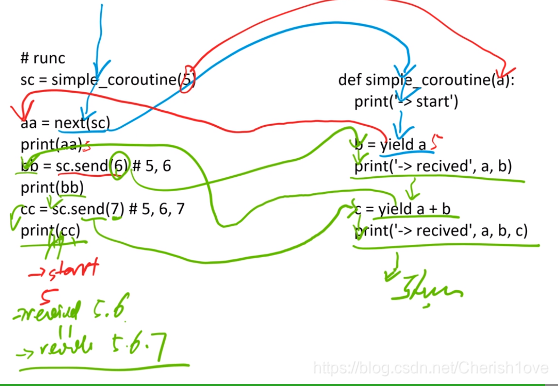 # runc
sc = simple_coroutine(5)
aa = next(sc)
print(aa) 5
bb = sc.send(6) # 5, 6
print(bb)
cc = sc.send(7) # 5, 6, 7
print(cc)
→ start
5
→ 5.6
11
→ 5.6.7
def simple_coroutine(a):
print('-> start')
b = yield a 5
print('-> recived', a, b)
c = yield a + b
print('-> recived', a, b, c)
https://blog.csdn.net/Cherish1ove